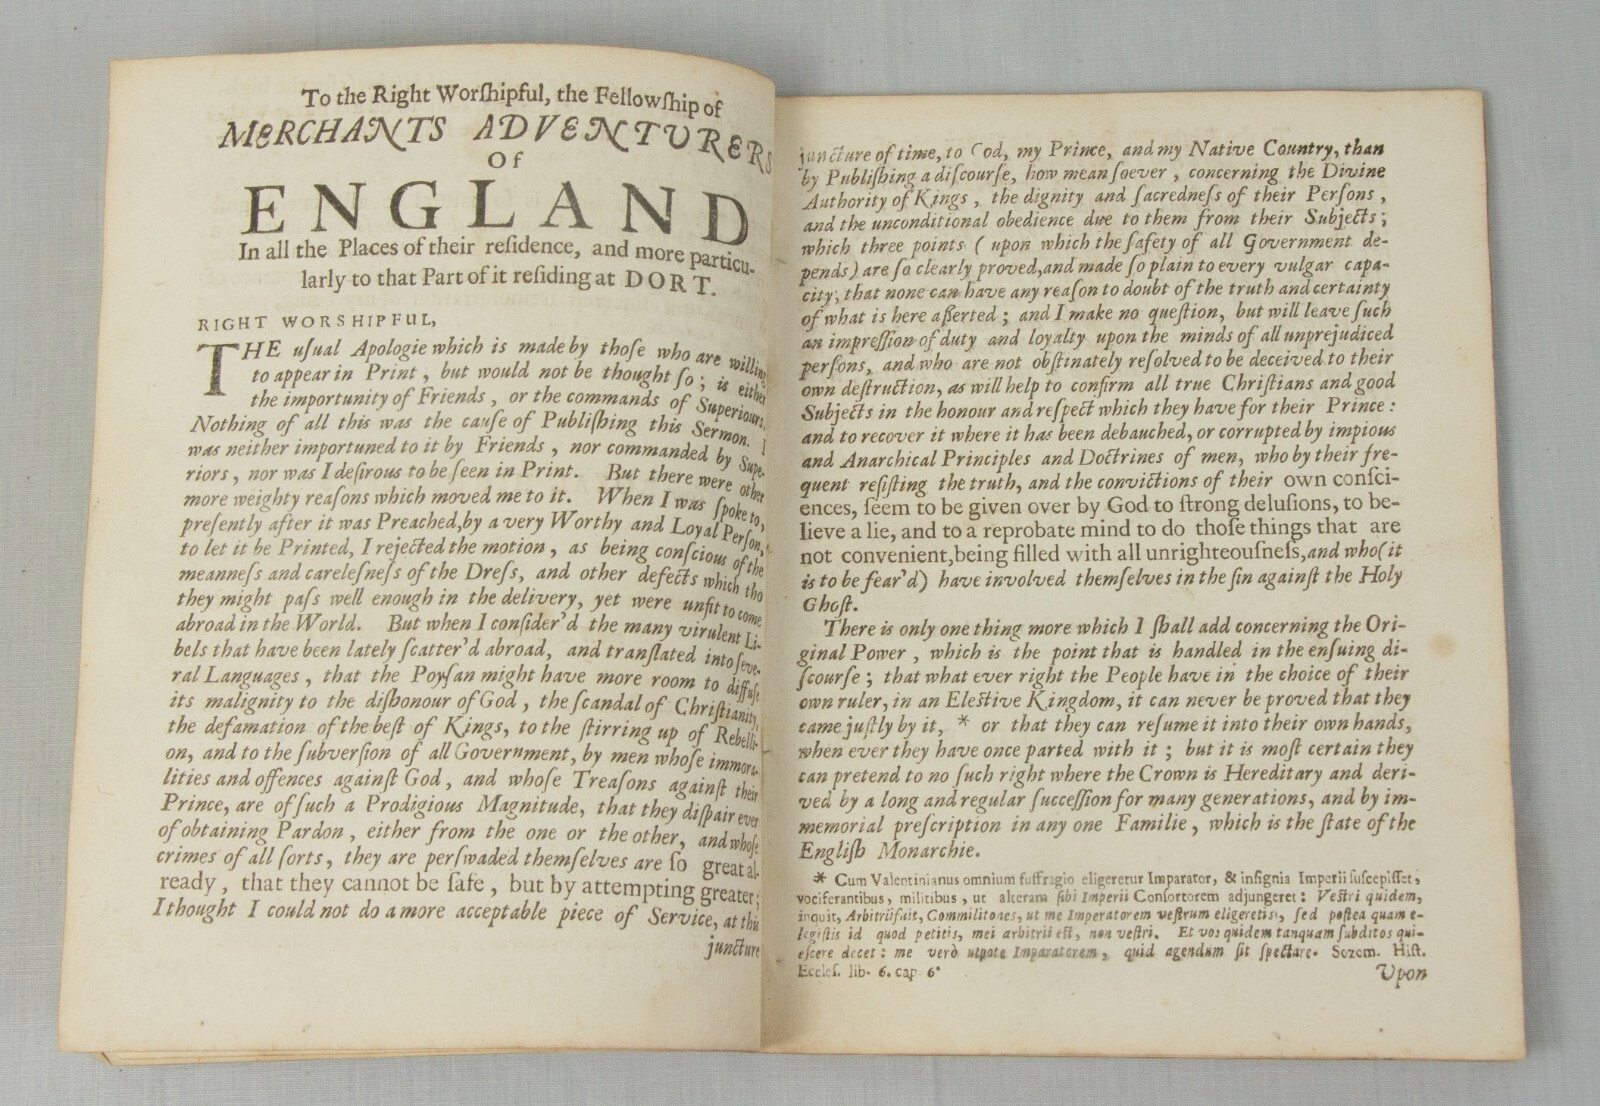 To the Right Worſhipful, the Fellowſhip of
MERCHANTS ADVENTURERS
OF
ENGLAND
In all the Places of their reſidence, and more particu-
larly to that Part of it reſiding at DORT.
RIGHT WORSHIPFUL,
THE uſual Apologie which is made by thoſe who are willing
to appear in Print, but would not be thought ſo; is either
the importunity of Friends, or the commands of Superiours.
Nothing of all this was the cauſe of Publiſhing this Sermon. I
was neither importuned to it by Friends, nor commanded by Supe-
riors, nor was I deſirous to be ſeen in Print. But there were other
more weighty reaſons which moved me to it. When I was ſpoke to,
preſently after it was Preached, by a very Worthy and Loyal Perſon,
to let it be Printed, I rejected the motion, as being conſcious of the
meanneſs and careleſneſs of the Dreſs, and other defects which tho
they might paſs well enough in the delivery, yet were unfit to come
abroad in the World. But when I conſider'd the many virulent Li-
bels that have been lately ſcatter'd abroad, and tranſlated into ſeve-
ral Languages, that the Poyſan might have more room to diffuſe
its malignity to the diſhonour of God, the ſcandal of Chriſtianity,
the defamation of the beſt of Kings, to the ſtirring up of Rebelli-
on, and to the ſubverſion of all Government, by men whoſe immora-
lities and offences againſt God, and whoſe Treaſons againſt their
Prince, are of ſuch a Prodigious Magnitude, that they diſpair ever
of obtaining Pardon, either from the one or the other, and whoſe
crimes of all ſorts, they are perſwaded themſelves are ſo great al-
ready, that they cannot be ſafe, but by attempting greater;
I thought I could not do a more acceptable piece of Service, at this
juncture
juncture of time, to God, my Prince, and my Native Country, than
by Publiſhing a diſcourſe, how mean ſoever, concerning the Divine
Authority of Kings, the dignity and ſacredneſs of their Perſons,
and the unconditional obedience due to them from their Subjects;
which three points (upon which the ſafety of all Government de-
pends) are ſo clearly proved, and made ſo plain to every vulgar capa-
city, that none can have any reaſon to doubt of the truth and certainty
of what is here aſſerted; and I make no queſtion, but will leave ſuch
an impreſſion of duty and loyalty upon the minds of all unprejudiced
perſons, and who are not obſtinately reſolved to be deceived to their
own deſtruction, as will help to confirm all true Chriſtians and good
Subjects in the honour and reſpect which they have for their Prince:
and to recover it where it has been debauched, or corrupted by impious
and Anarchical Principles and Doctrines of men, who by their fre-
quent reſiſting the truth, and the convictions of their own conſci-
ences, ſeem to be given over by God to ſtrong deluſions, to be-
lieve a lie, and to a reprobate mind to do thoſe things that are
not convenient, being filled with all unrighteouſneſs, and who (it
is to be fear'd) have involved themſelves in the ſin againſt the Holy
Ghoſt.
There is only one thing more which I ſhall add concerning the Ori-
ginal Power, which is the point that is handled in the enſuing di-
ſcourſe; that what ever right the People have in the choice of their
own ruler, in an Elective Kingdom, it can never be proved that they
came juſtly by it, * or that they can reſume it into their own hands,
when ever they have once parted with it; but it is moſt certain they
can pretend to no ſuch right where the Crown is Hereditary and deri-
ved by a long and regular ſucceſſion for many generations, and by im-
memorial preſcription in any one Familie, which is the ſtate of the
Engliſh Monarchie.
* Cum Valentinianus omnium ſuffragio eligeretur Imparator, & inſignia Imperii ſuſcepiſſet,
vociferantibus, militibus, ut alteram ſibi Imperii Conſortorem adjungeret: Veſtri quidem,
inquit, Arbitrii fuit, Commilitones, ut me Imperatorem veſtrum eligeretis, ſed poſtea quam e-
legiſtis id quod petitis, mei arbitrii eſt, non veſtri. Et vos quidem tanquam ſubditos qui-
eſcere decet: me verò utpote Imparatorem, quid agendum ſit ſpectare. Sozom. Hiſt.
Eccleſ. lib. 6. cap. 6.
Upon